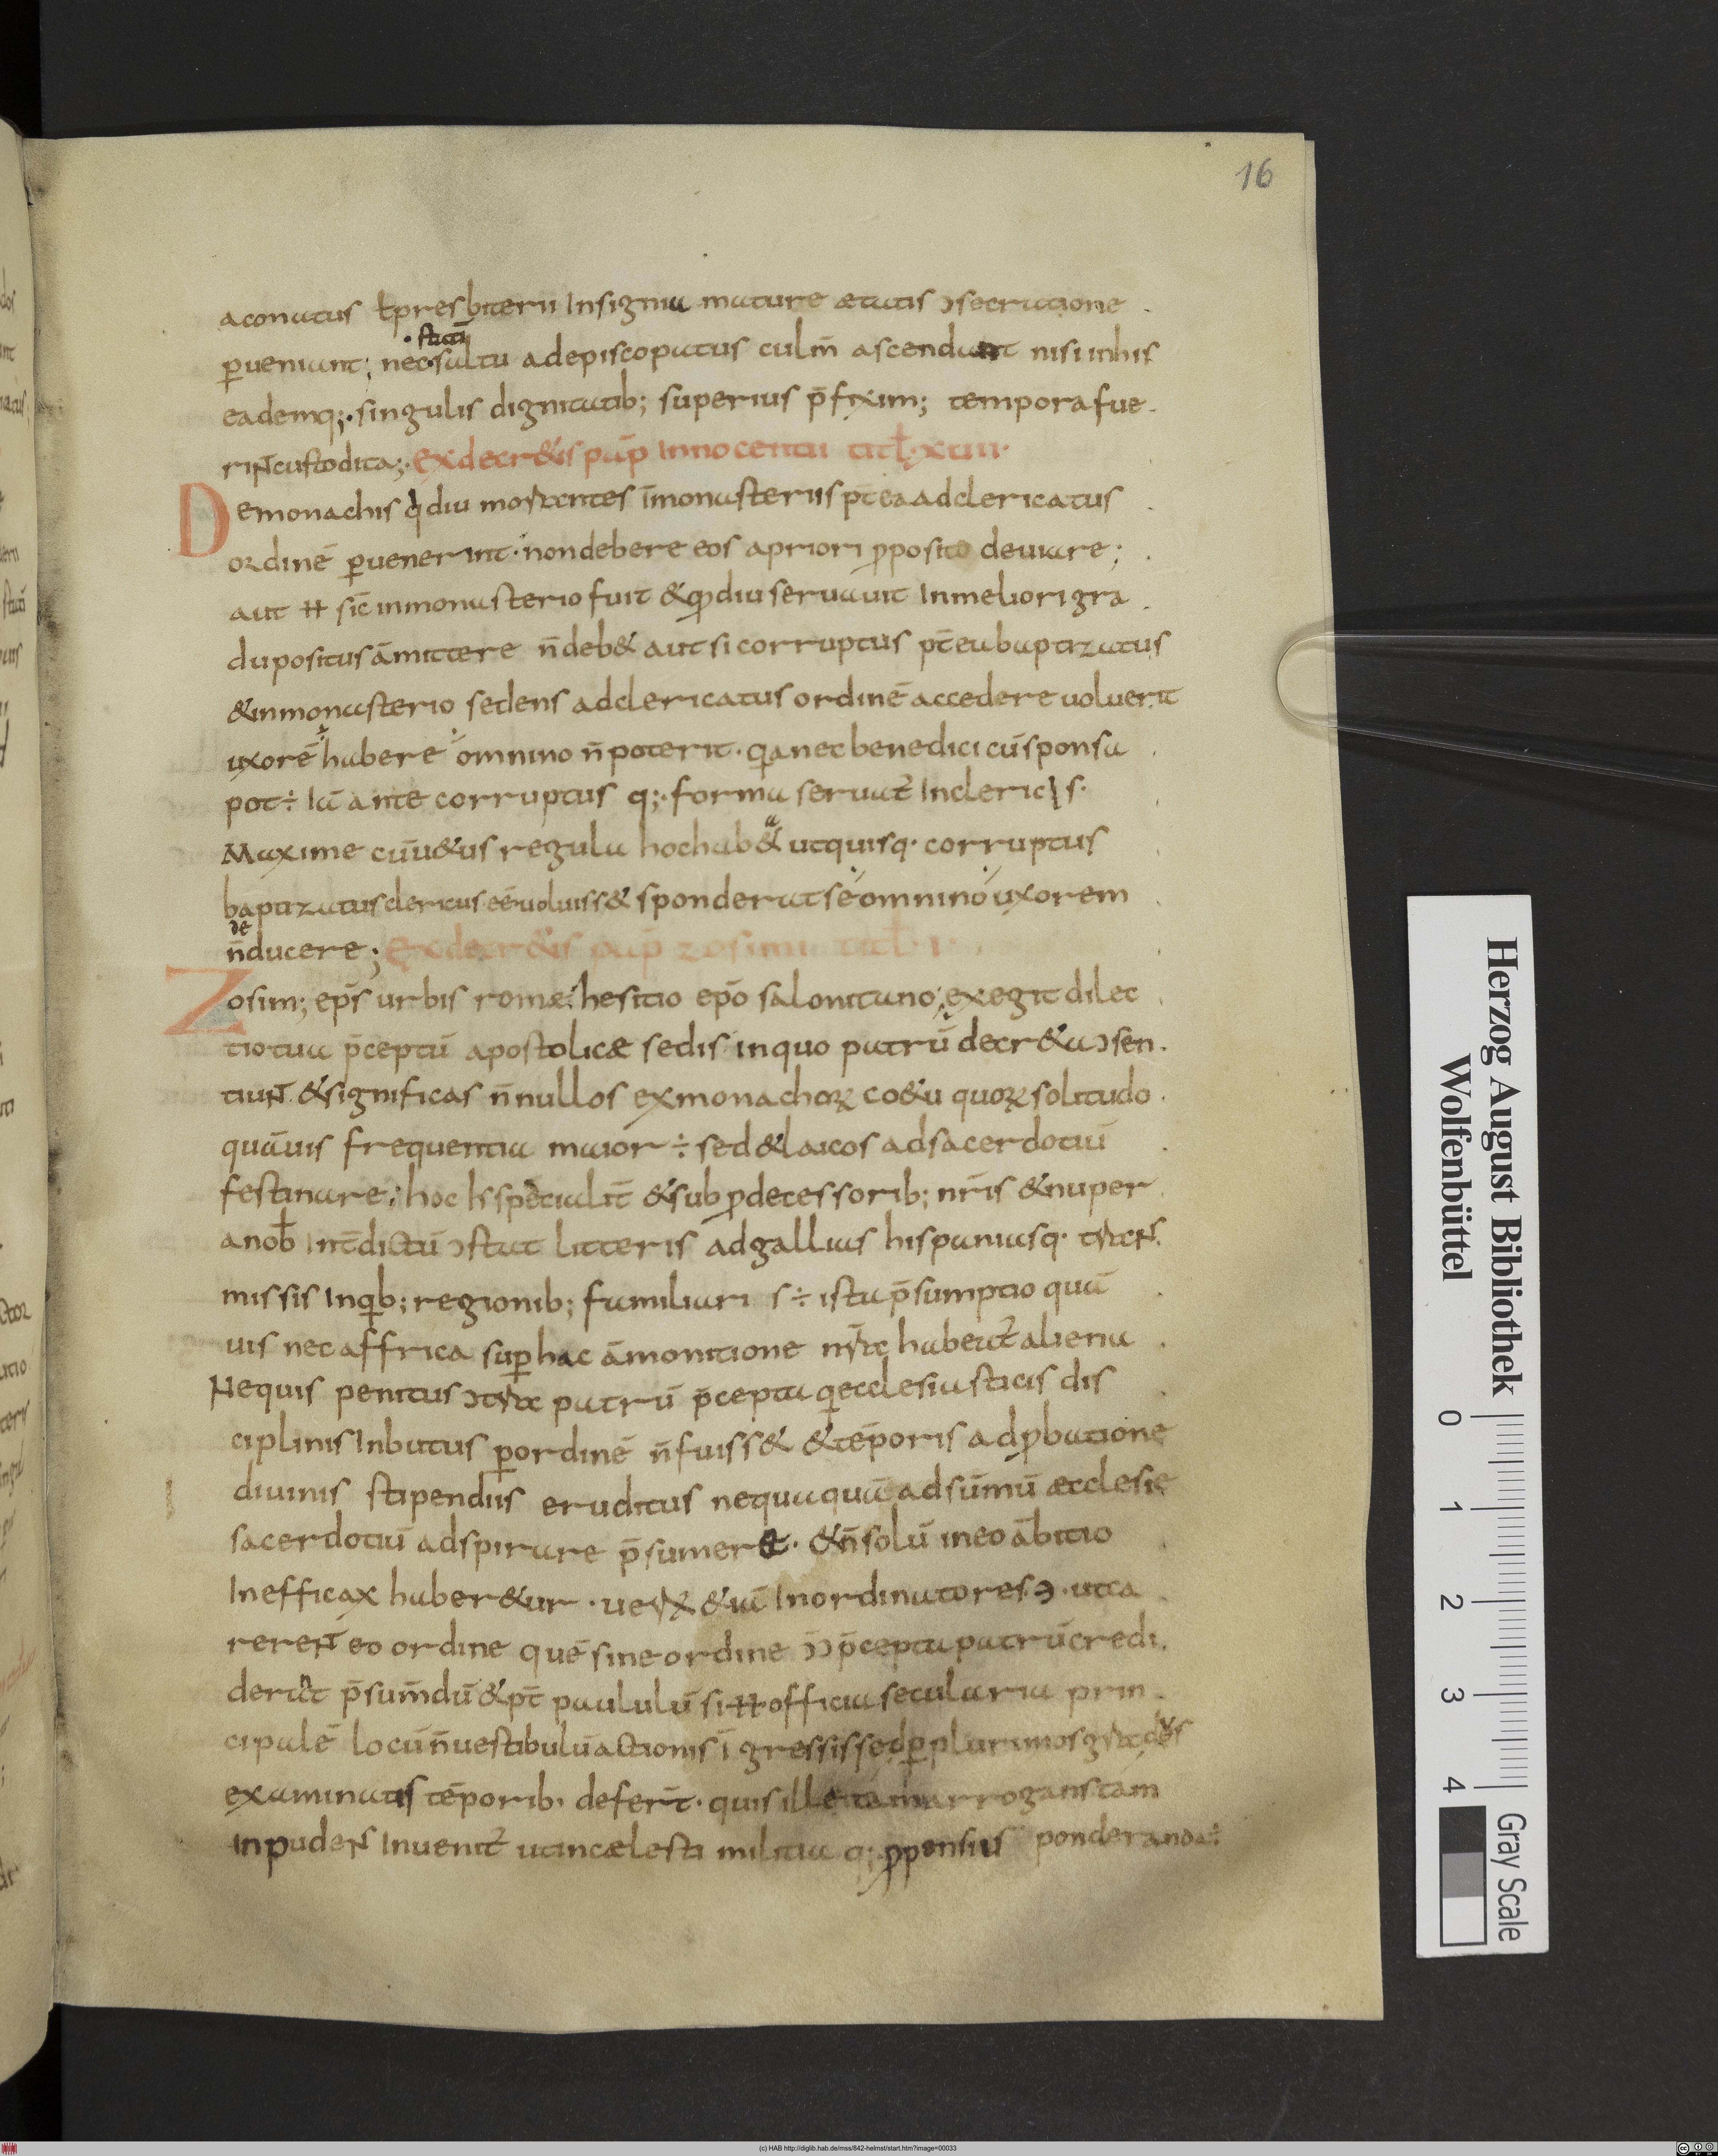 16
aconatus ł presbiterii Insignia mature ætatis ɔsecratione
ꝑueniant; nec saltu adepiscopatus culm̄ ascendant nisi inhis
statī
eademq;· singulis dignitatib; superius p̄fixim; tempora fue
rint custodita;· Ex decr&is pap̄ Innocentii titł· xuiii·
Demonachis q̇ diu morantes īmonasteriis pt̄ea adclericatus
ordinē ꝑuenerint· non debere eos apriori ꝓposito deuiare;
aut ħ sic̄ inmonasterio fuit & qđ diu seruauit Inmeliori gra
du positus āmittere n̄ deb& aut si corruptus pt̄ea baptizatus
& inmonasterio sedens adclericatus ordinē accedere uoluerit
uxorē habere omnino n̄ poterit· qia nec benedici cū sponsa
pot÷ Iā ante corruptus q;· forma seruat̄ Inclericis·
Maxime cū u&us regula hoc hab& ut quisq· corruptus
baptizatus clericus eē uoluiss& sponderat se omnino uxorem
n̄ ducere; Ex decr&is pap̄ zosimi titł· I·
de
Zosim; ep̄s urbis romæ hesitio ep̄o salonitano exegit dilec
tio tua p̄ceptū apostolicæ sedis in quo patrū decr&a ɔsen
tiunt & significas n̄nullos ex monachoꝝ co&u quoꝝ solitudo
quāuis frequentia maior ÷ sed & laicos adsacerdotiū
festinare hoc ħ specialit̄ & sub ꝓdecessorib; nr̄is & nuper
anob̄ Int̄dictū ɔstat litteris adgallias hispaniasq·
missis Inqib; regionib; familiari s÷ ista p̄sumptio quā
uis nec affrica suꝑ hac āmonitione habeat̄ aliena
Nequis penitus patrū p̄cepta qi ecclesiasticis dis
ciplinis Inbutus ꝑ ordinē n̄ fuiss& & tēporis adꝓbatione
diuinis stipendiis eruditus nequaquā ad sūmū æcclesie
sacerdotiū adspirare p̄sumer&· & n̄ solū in eo ābitio
Inefficax haber&ur & iā Inordinatores ɔ· ut ca
rerent eo ordine quē sine ordine p̄cepta patrū credi
derat p̄sum̄dū & pt̄ paululū si ħ officia secularia prin
cipalē locū n̄ uestibulū actionis īgressis sed ꝑ plurimos
examinatis tēporib· defert̄· quis ille tām arrogans tām
Inpudens Inuenit̄ ut incælesti militia q; ꝓpensius ponderanda÷
Herzog August Bibliothek
Wolfenbüttel
0 1 2 3 4
Gray Scale
(c) HAB http://diglib.hab.de/mss/842-helmst/start.htm?image=00033